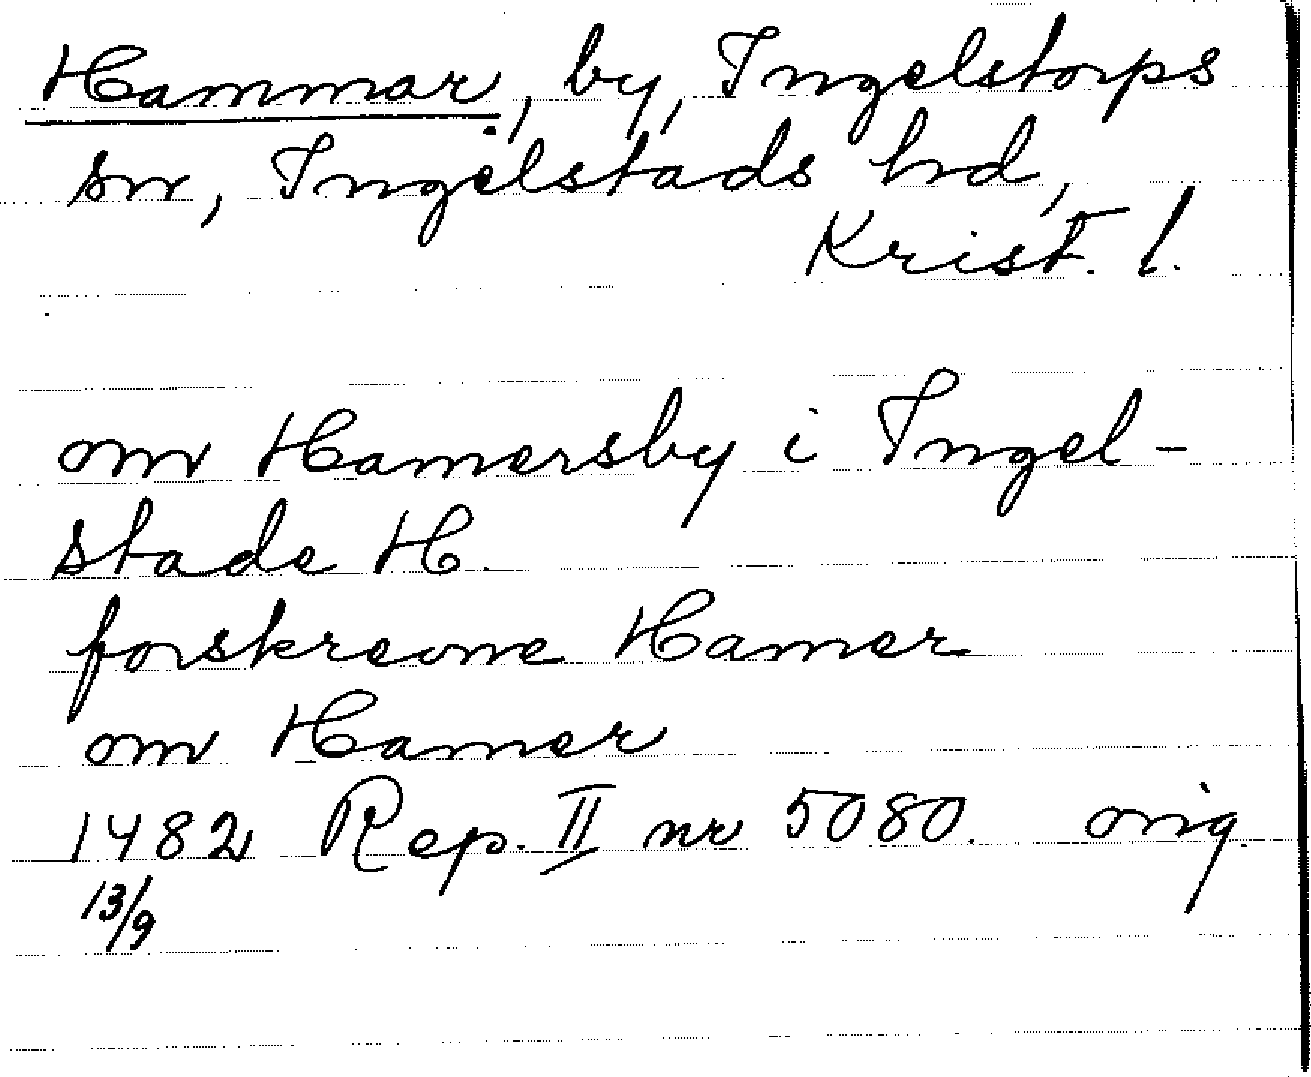 Hammar, by, Ingelstorps
sn, Ingelstads hd,
Krist. l.
om Hamersby i Ingel-
stade H.
forskreone Hamer
om Hamer
1482 Rep. II nr 5080. orig.
13/9